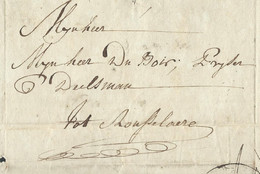 Mynheer
Mynheer Du Bois, Pryser
Deelsman
tot Rousselaere